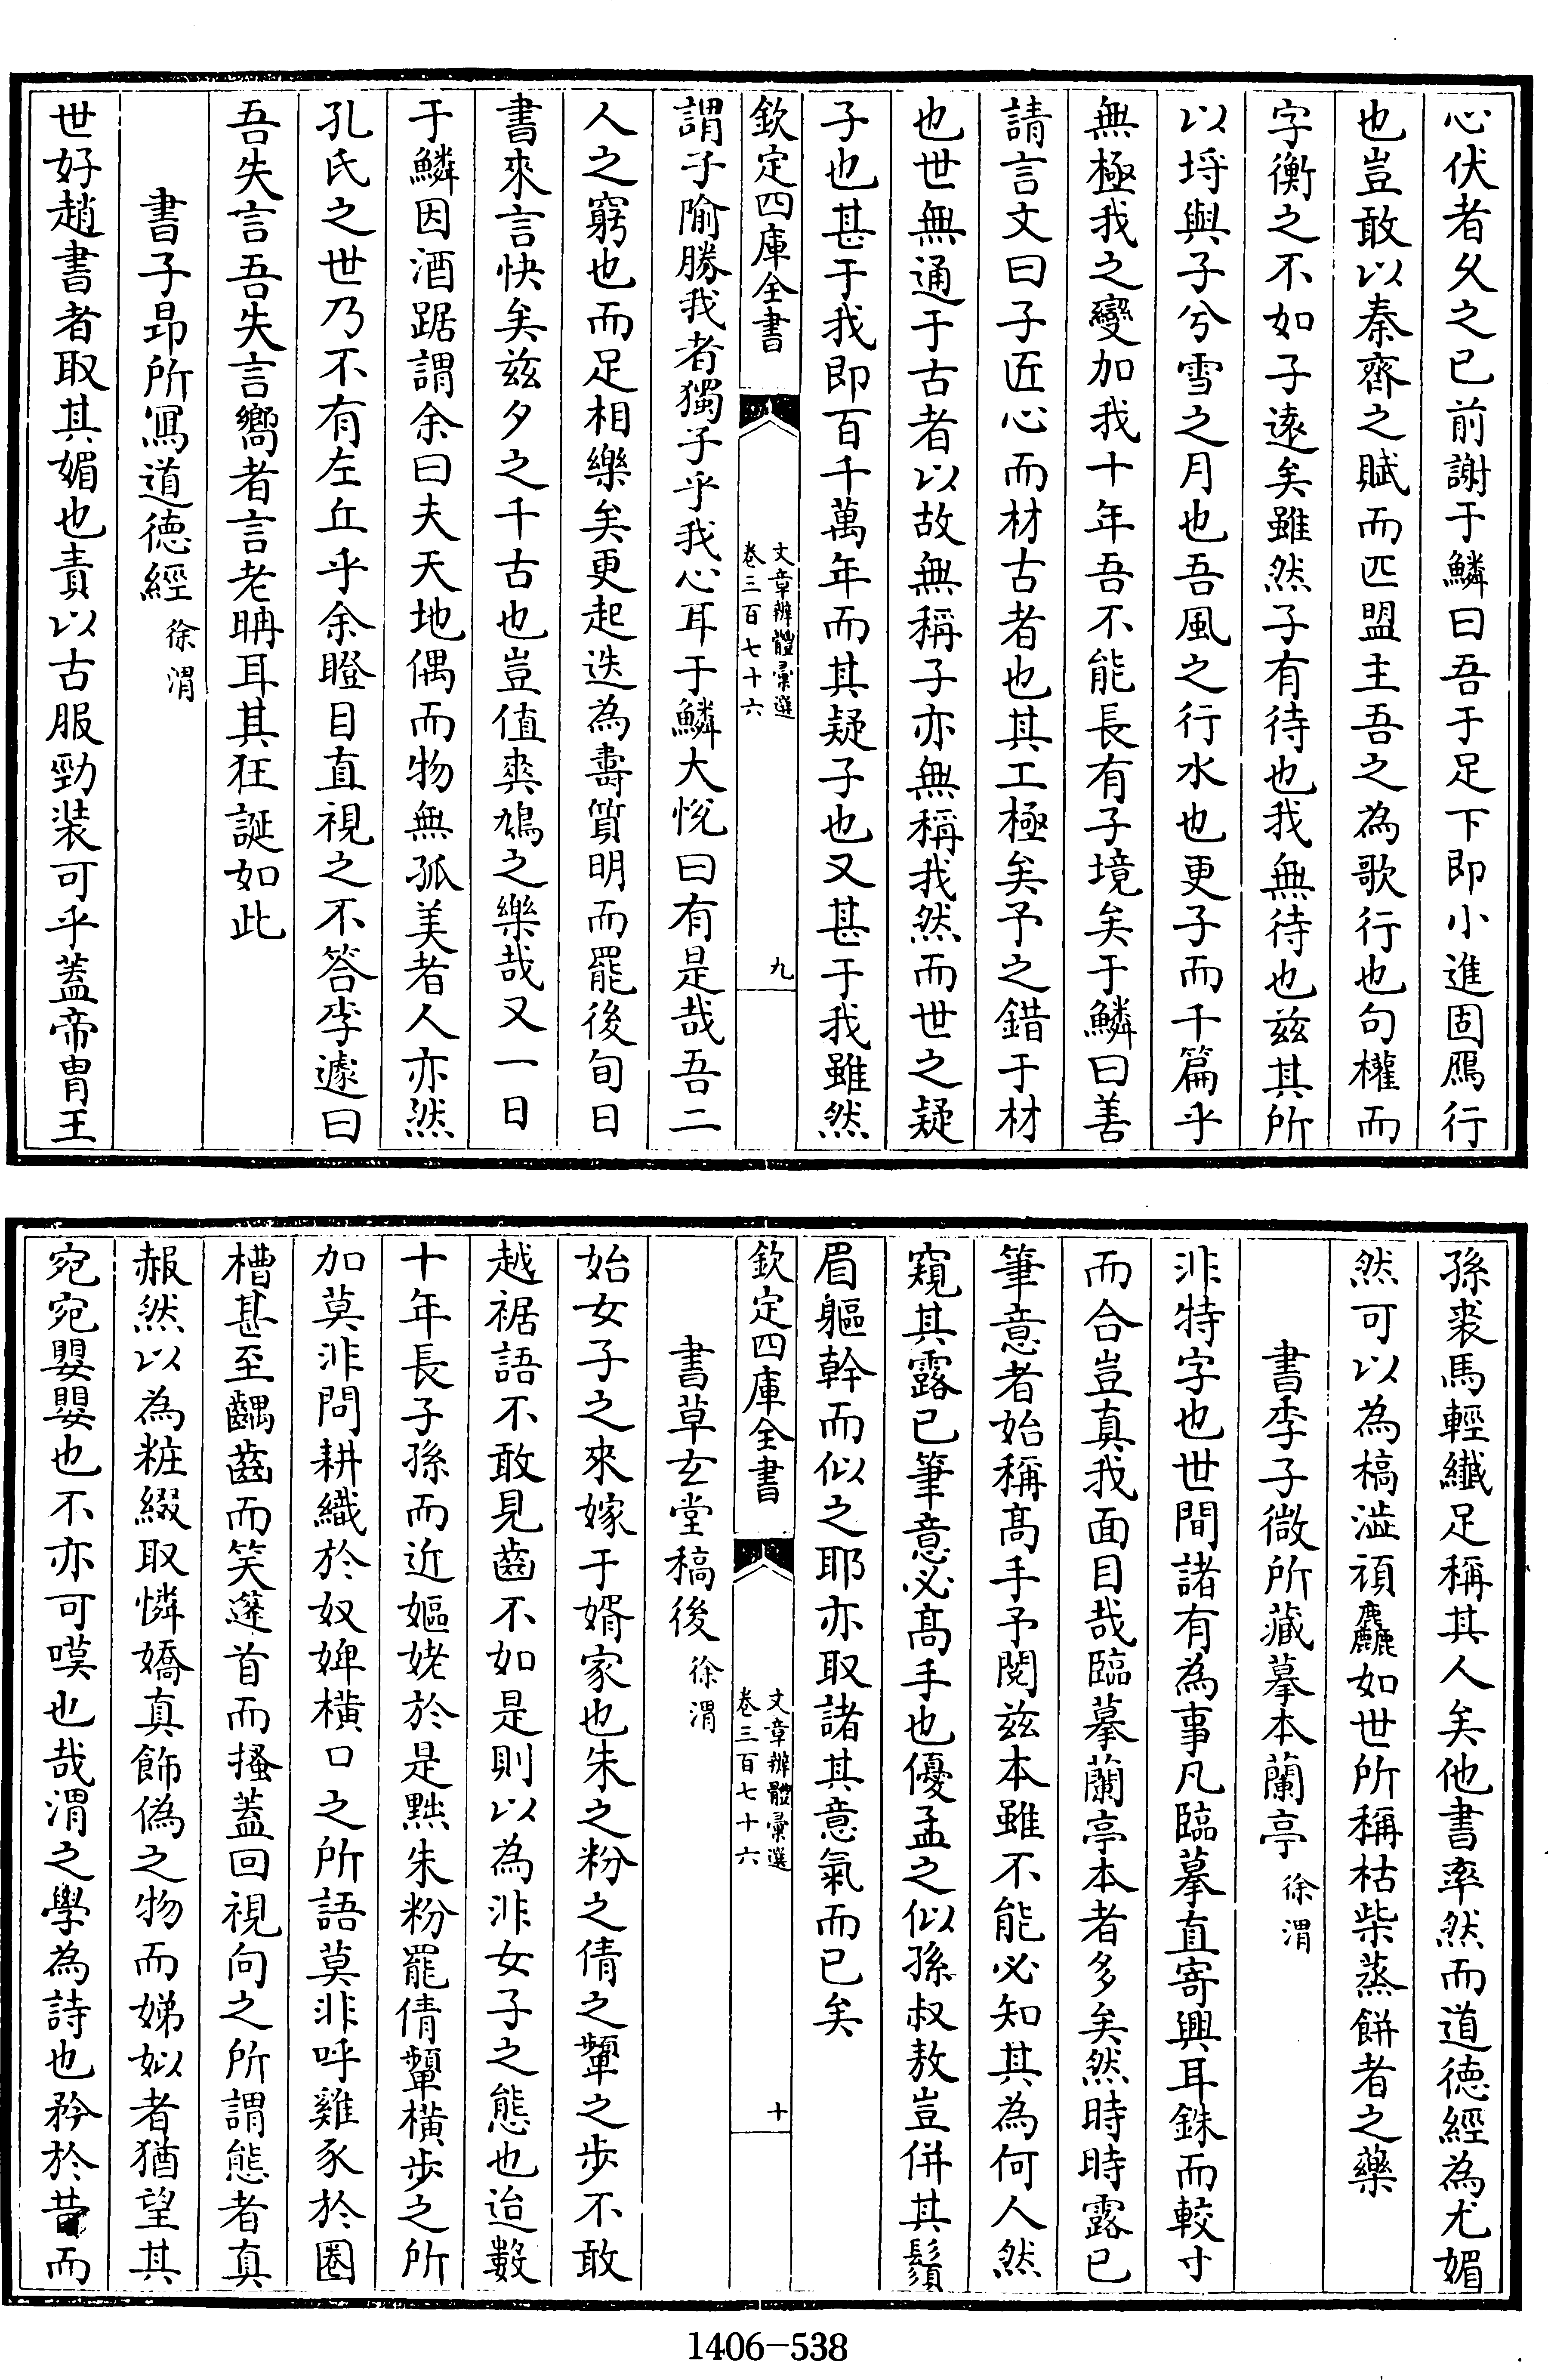 心伏者久之已前謝于鱗曰吾于足下即小進固鴈行
也豈敢以秦齊之賦而匹盟主吾之為歌行也句權而
字衡之不如子遠矣雖然子有待也我無待也兹其所
以埒與子兮雪之月也吾風之行水也更子而千篇乎
無極我之變加我十年吾不能長有子境矣于鱗曰善
請言文曰子匠心而材古者也其工極矣予之錯于材
也世無通于古者以故無稱子亦無稱我然而世之疑
子也甚于我即百千萬年而其疑子也又甚于我雖然
欽定四庫全書
文章辨體彙選
卷三百七十六
九
謂子隃勝我者獨子乎我心耳于鱗大悅曰有是哉吾二
人之窮也而足相樂矣更起迭為壽質明而罷後旬日
書來言快矣兹夕之千古也豈值爽鳩之樂哉又一日
于鱗因酒踞謂余曰夫天地偶而物無孤美者人亦然
孔氏之世乃不有左丘乎余瞪目直視之不答李遽曰
吾失言吾失言嚮者言老聃耳其狂誕如此
書子昂所寫道德經 徐渭
世好趙書者取其媚也責以古服勁裝可乎蓋帝胄王
孫裘馬輕纖足稱其人矣他書率然而道德經為尤媚
然可以為槁澁頑麤如世所稱枯柴蒸餅者之藥
書季子微所藏摹本蘭亭 徐渭
非特字也世間諸有為事凡臨摹直寄興耳銖而較寸
而合豈真我面目哉臨摹蘭亭本者多矣然時時露已
筆意者始稱髙手予閱兹本雖不能必知其為何人然
窺其露已筆意必髙手也優孟之似孫叔敖豈併其鬚
眉軀幹而似之耶亦取諸其意氣而已矣
欽定四庫全書
文章辨體彙選
卷三百七十六
十
書草玄堂稿後 徐渭
始女子之來嫁于婿家也朱之粉之倩之顰之步不敢
越裾語不敢見齒不如是則以為非女子之態也迨數
十年長子孫而近嫗姥於是黜朱粉罷倩顰橫步之所
加莫非問耕織於奴婢橫口之所語莫非呼雞豕於圈
槽甚至齲齒而笑蓬首而搔蓋回視向之所謂態者真
赧然以為粧綴取憐嬌真飾偽之物而娣姒者猶望其
宛宛嬰嬰也不亦可嘆也哉渭之學為詩也矜於昔而
1406-538